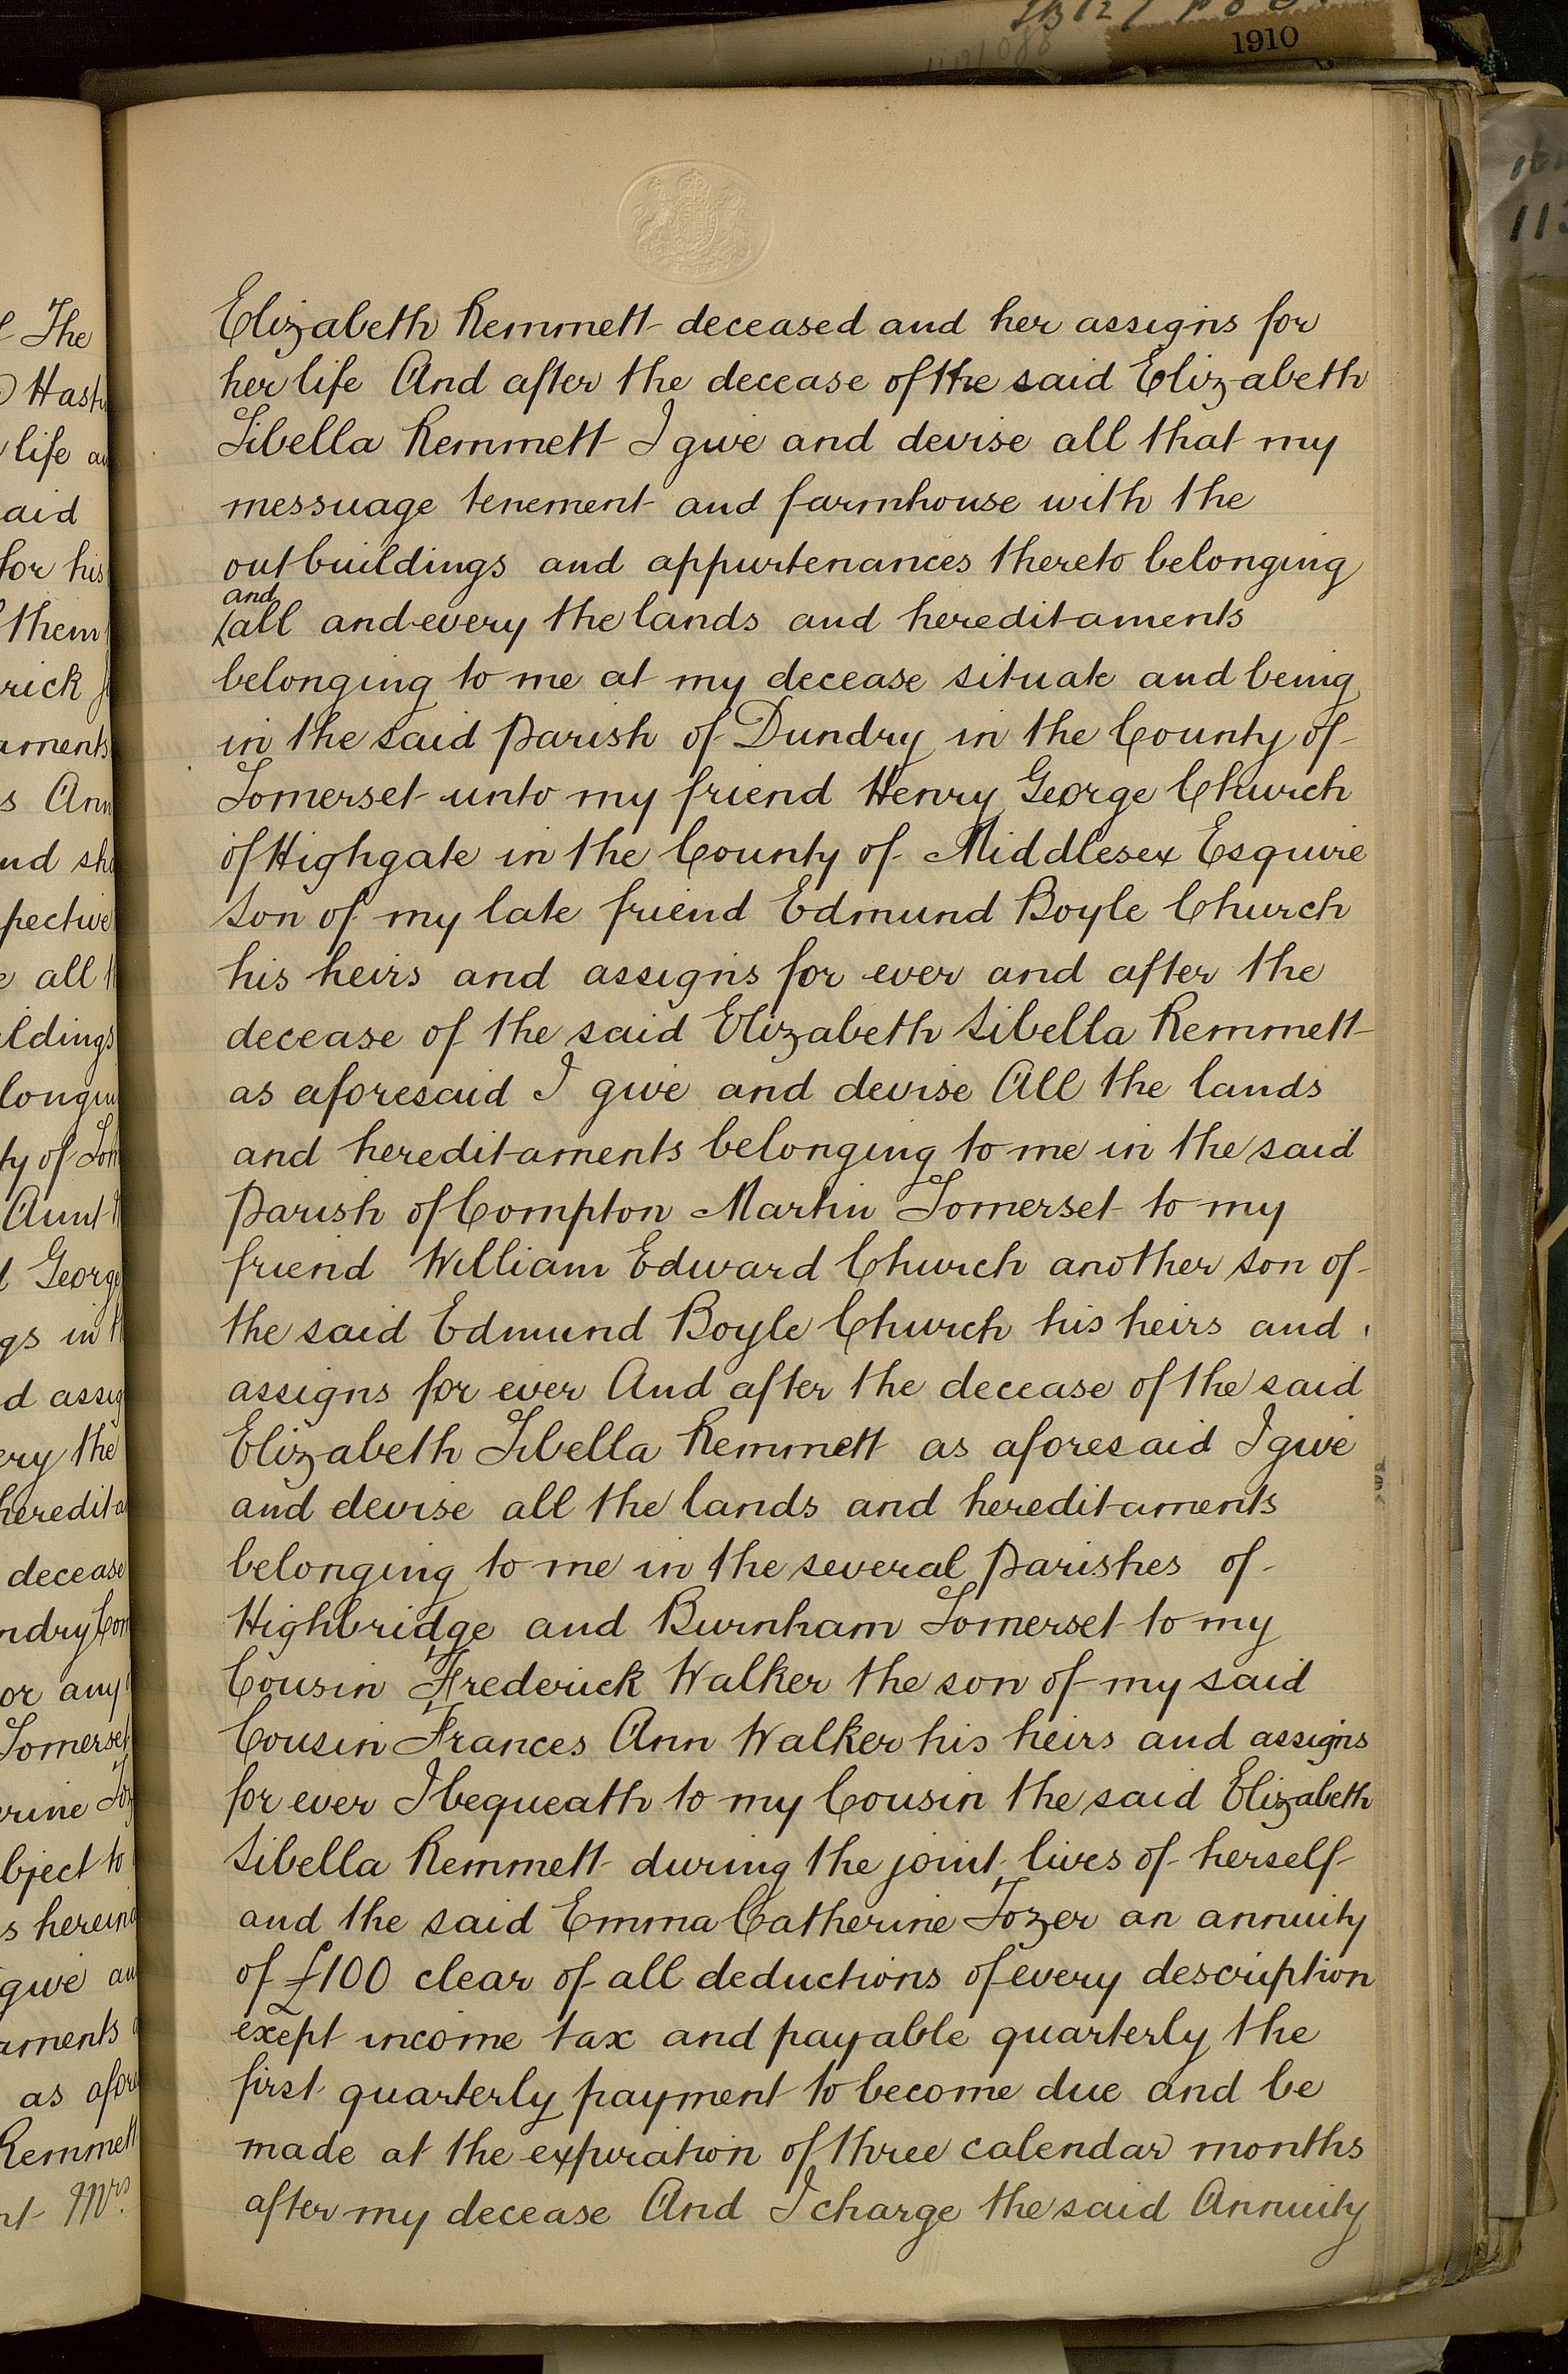 1910
Elizabeth Remmett deceased and her assigns for
her life And after the decease of the said Elizabeth
Sibella Remmett I give and devise all that my
messuage tenement and farmhouse with the
outbuildings and appurtenances thereto belonging
and
all and every the lands and hereditaments
belonging to me at my decease situate and being
in the said parish of Dundry in the County of
Somerset unto my friend Henry George Church
of Highgate in the County of Middlesex Esquire
son of my late friend Edmund Boyle Church
his heirs and assigns for ever and after the
decease of the said Elizabeth Sibella Remmett
as aforesaid I give and devise All the lands
and hereditaments belonging to me in the said
parish of Compton Martin Somerset to my
friend William Edward Church another son of
the said Edmund Boyle Church his heirs and
assigns for ever And after the decease of the said
Elizabeth Sibella Remmett as aforesaid I give
and devise all the lands and hereditaments
belonging to me in the several parishes of
Highbridge and Burnham Somerset to my
Cousin Frederick Walker the son of my said
Cousin Frances Ann Walker his heirs and assigns
for ever I bequeath to my Cousin the said Elizabeth
Sibella Remmett during the joint lives of herself
and the said Emma Catherine Tozer an annuity
of £100 clear of all deductions of every description
exept income tax and payable quarterly the
first quarterly payment to become due and be
made at the expiration of three calendar months
after my decease And I charge the said Annuity
The
life
aid
for his
them
rick
s Ann
all
Aunt
George
gs in
the
decease
or any
Somerset
bject to
give
as
Remmett
Mrs.